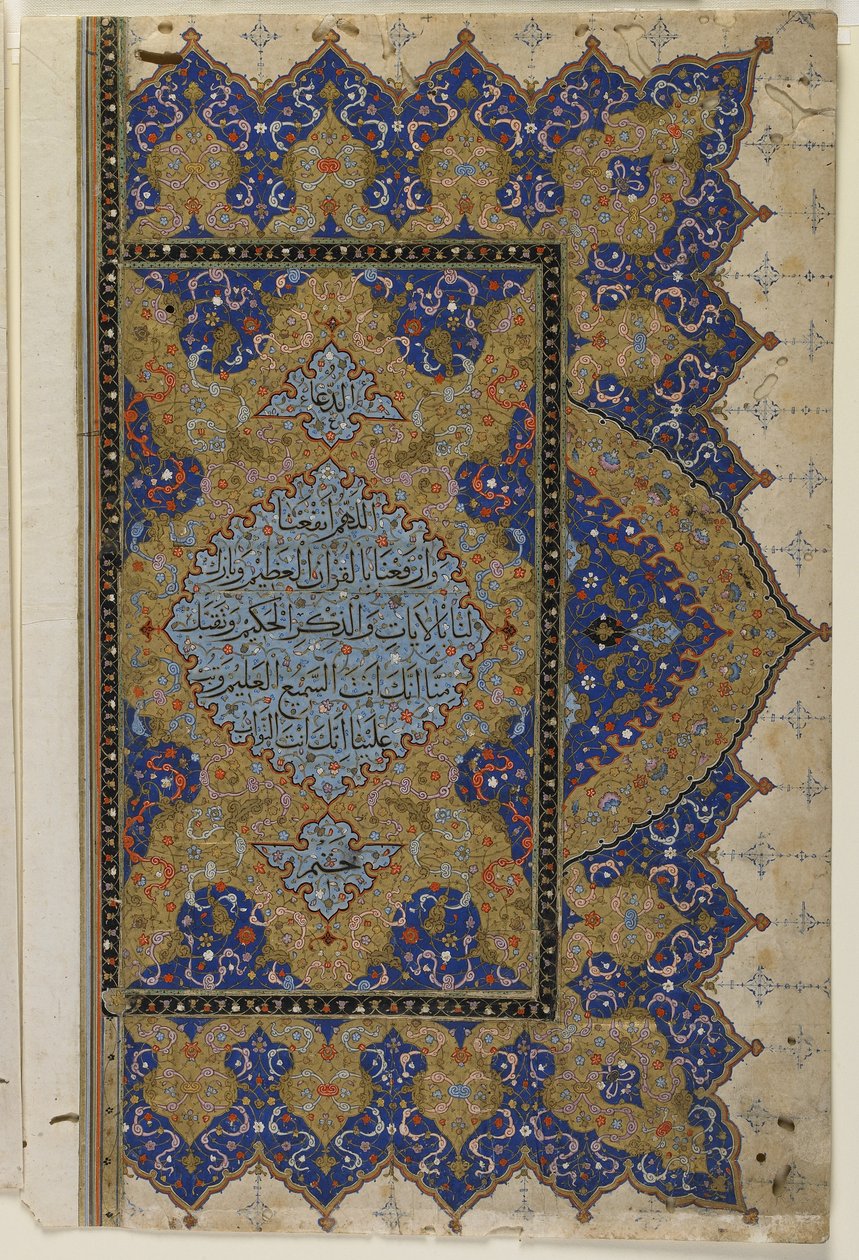 الدُّعَا
اَللّٰهُمَّ اَنْفَعْنَا
وَارْفَعْنَا بِالْقُرْاٰنِ الْعَظِيْمِ وَبَارِكْ
لَنَا بِالْاٰيَاتِ وَالذِّكْرِ الْحَكِيْمِ وَتَقَبَّلْ
مِنَّا اِنَّكَ اَنْتَ السَّمِيْعُ الْعَلِيْمُ وَتُبْ
عَلَيْنَا اِنَّكَ اَنْتَ التَّوَّابُ
ختم